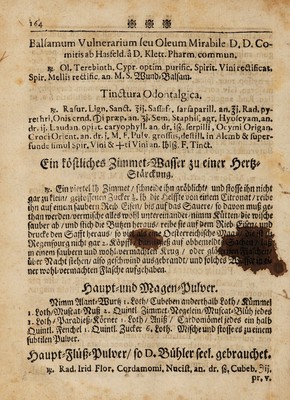 164
Balsamum Vulnerarium seu Oleum Mirabile D. D. Comitis
ab Hasfeld. â D. Klett. Pharm. commun.
℞. Ol. Terebinth. Cypr. optim. purific. Spirit. Vini rectificat.
Spir. Mellis rectific. an. M. S. Wund-Balsam.
Tinctura Odontalgica.
℞. Rasur. Lign. Sanct. Sassafr. sarsaparill. an. Rad. pyrethri,
Sem. Staphis. agr. Hyoscyam. an.
Laudan. opiat. caryophyll. an. dr. serpilli, Ocymi Origan.
Croci Orient. an. dr. M. F. Pulv. grossus, destill. in Alemb & superfunde
simul Spir. Vini & an. F. Tinct.
Ein köstliches Zimmet-Wasser zu einer Hertz-
Stärckung.
℞. Ein viertel Zimmet / schneide ihn gröblicht / und stosse ihn nicht
gar zu klein / gestossenen Zucker die Helffte von einem Citronat / reibe
ihn auf einem Rieb-Eisen / biß auf das Saure / so davon muß gethan
werden / vermische alles wohl untereinander / nimm Kütten / die wische
sauber ab / und stich die Butzen heraus / reibe sie auf dem Rieb-Eisen / und
drucke den Safft heraus / so Oesterreichische Maaß
Regenspurg nicht gar 2. Köpff auf obbemeldte Sachen
in einem saubern und wohl-vermachten Krug / oder
über Nacht stehen / alles geschwind ausgebrandt und solches
ner wohl-vermachten Flasche aufgehaben.
Haupt- und Magen-Pulver.
Nimm Alant-Wurtz 1. Loth / Cubeben anderthalb Loth / Kümmel
1. Loth / Muscat-Nuß 2. Quintl. Zimmet-Negelein / Muscat-Blüh jedes
1. Loth / Paradieß-Körner 1. Loth / Aniß / Cardomömel jedes ein halb
Quintl. Fenchel 1. Quintl. Zucker 6. Loth / Mische und stosse es zu einem
subtilen Pulver.
Haupt-Flüß-Pulver / so D. Bühler seel. gebrauchet.
℞. Rad. Irid Flor, Cordamomi, Nucist. an. dr. ß, Cubeb.
pr. v.